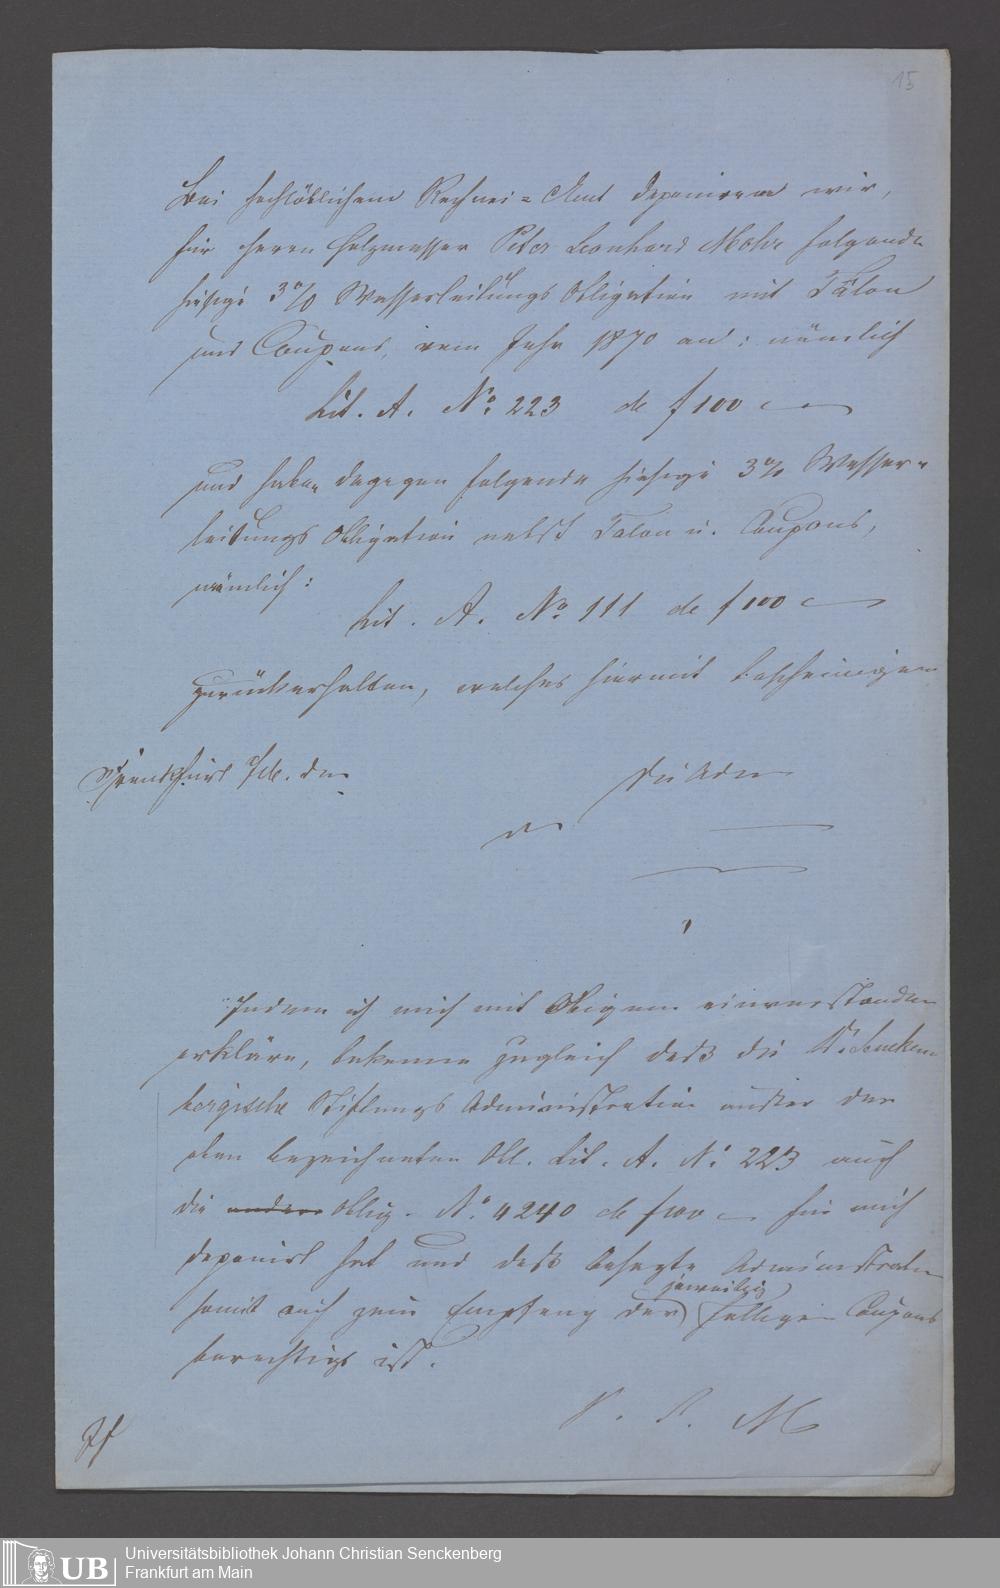 15
Bei hochlöblichem Rechnei=Amt deponiren wir,
für Herrn Holzmesser Peter Leonhard Mohr folgende
hiesige 3% Wasserleitungs Obligation mit Talon
und Coupons, vom Jahr 1870 an: nämlich
Lit. A. No. 223 de f 100
und haben dagegen folgende hiesige 3% Wasser-
leitungs Obligation nebst Talon u. Coupons,
nämlich:
Lit. A. No. 111 de f 100
zurückerhalten, welches hiermit bescheinigen
Frankfurt den
Die Adm
Indem ich mich mit Obigem einverstanden
erkläre, bekenne zugleich daß die Dr. Sencken
bergische Stiftungs Administration außer der
oben bezeichneten Obl. Lit. A. No. 223 auch
die andere Oblig. No. 4240 de f 100 für mich
deponirt hat und daß besagte Administration
jeweilig
somit auch zum Empfang der fälligen Coupons
berechtigt ist.
P. L. M
Universitätsbibliothek Johann Christian Senckenberg
Frankfurt am Main
UB